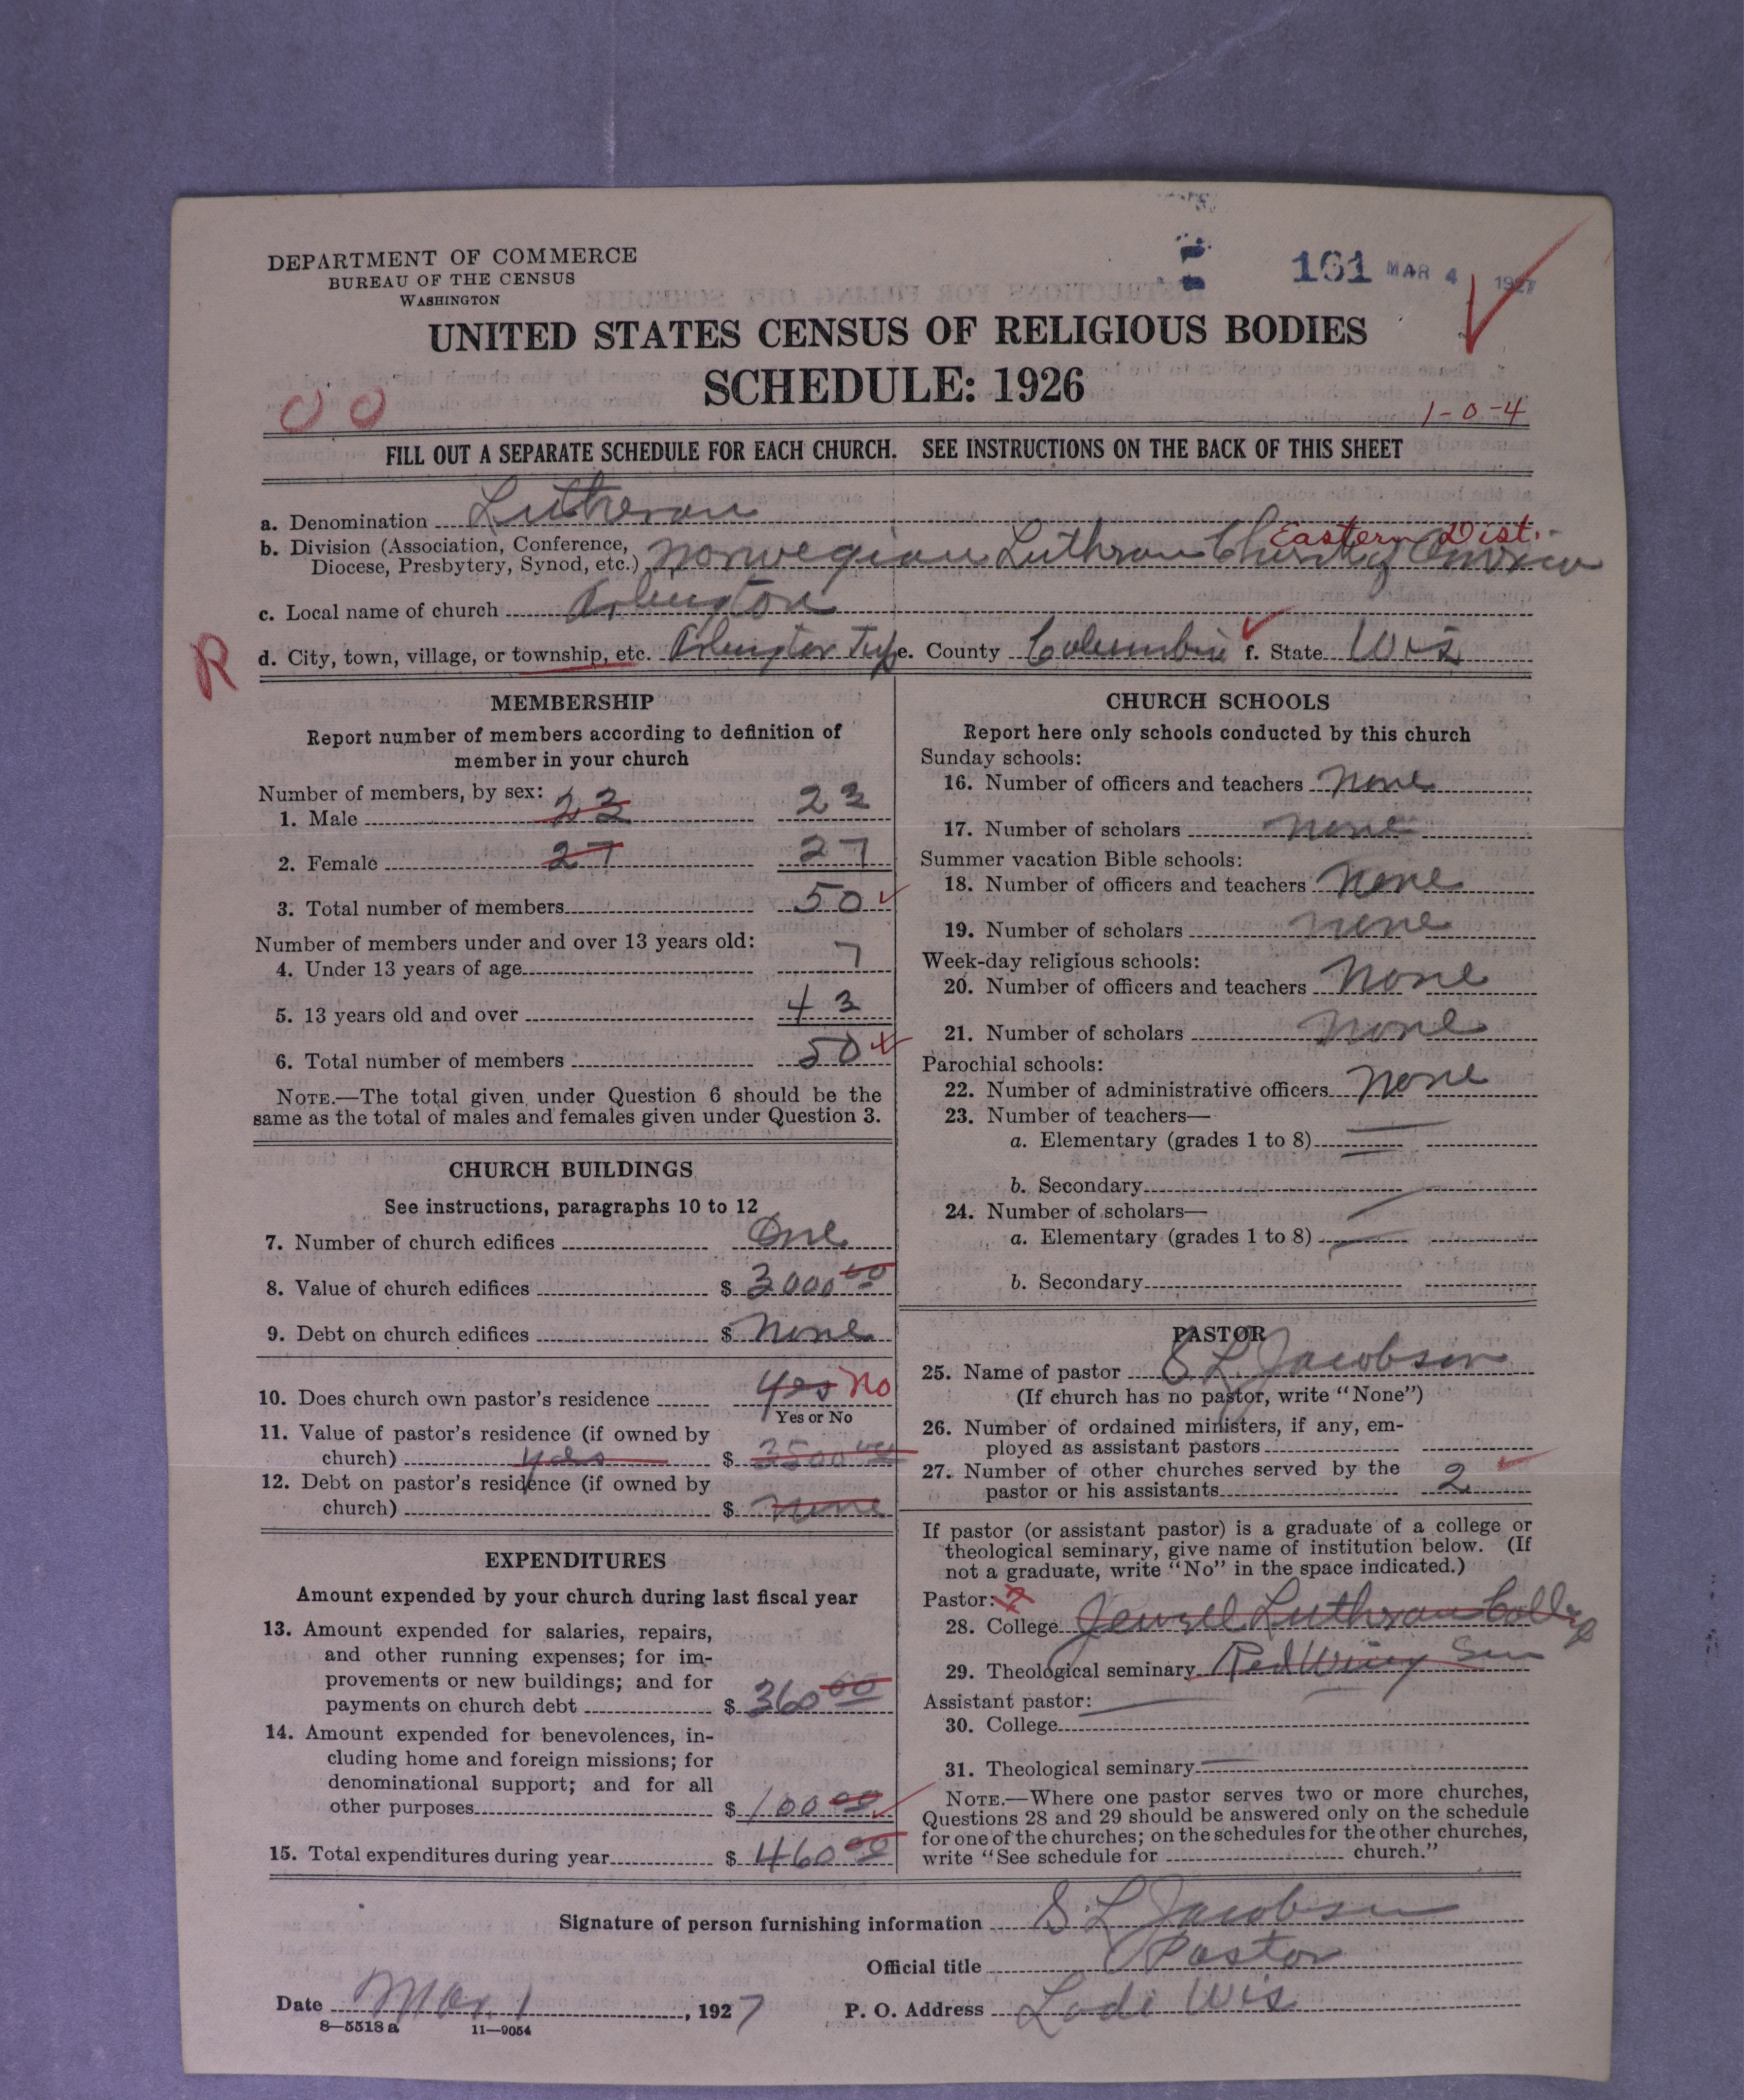 DEPARTMENT OF COMMERCE
BUREAU OF THE CENSUS
WASHINGTON
161 MAR 4 1927
UNITED STATES CENSUS OF RELIGIOUS BODIES
SCHEDULE: 1926
1-0-4
FILL OUT A SEPARATE SCHEDULE FOR EACH CHURCH. SEE INSTRUCTIONS ON THE BACK OF THIS SHEET
a. Denomination Lutheran
Eastern Dist.
b. Division (Association, Conference, Diocese, Presbytery, Synod, etc.) Norwegian Luthran Church of America
c. Local name of church Arlington
R
d. City, town, village, or township, etc. Arlington Twp e. County Columbia f. State Wis
MEMBERSHIP
Report number of members according to definition of
member in your church
Number of members, by sex:
1. Male 23 23
2. Female 27 27
3. Total number of members 50
Number of members under and over 13 years old:
4. Under 13 years of age 7
5. 13 years old and over 43
6. Total number of members 50
NOTE.—The total given under Question 6 should be the
same as the total of males and females given under Question 3.
CHURCH BUILDINGS
See instructions, paragraphs 10 to 12
7. Number of church edifices One
8. Value of church edifices $ 3000 00
9. Debt on church edifices $ None
10. Does church own pastor's residence Yes No
Yes or No
11. Value of pastor's residence (if owned by
church) yes $ 3500 00
12. Debt on pastor's residence (if owned by
church) $ none
EXPENDITURES
Amount expended by your church during last fiscal year
13. Amount expended for salaries, repairs,
and other running expenses; for im-
provements or new buildings; and for
payments on church debt $ 360 00
14. Amount expended for benevolences, in-
cluding home and foreign missions; for
denominational support; and for all
other purposes $ 100 00
15. Total expenditures during year $ 460 00
CHURCH SCHOOLS
Report here only schools conducted by this church
Sunday schools:
16. Number of officers and teachers None
17. Number of scholars None
Summer vacation Bible schools:
18. Number of officers and teachers None
19. Number of scholars none
Week-day religious schools:
20. Number of officers and teachers None
21. Number of scholars None
Parochial schools:
22. Number of administrative officers None
23. Number of teachers—
a. Elementary (grades 1 to 8)
b. Secondary
24. Number of scholars—
a. Elementary (grades 1 to 8)
b. Secondary
PASTOR
25. Name of pastor S L Jacobson
(If church has no pastor, write "None")
26. Number of ordained ministers, if any, em-
ployed as assistant pastors
27. Number of other churches served by the
pastor or his assistants 2
If pastor (or assistant pastor) is a graduate of a college or
theological seminary, give name of institution below. (If
not a graduate, write "No" in the space indicated.)
Pastor:
28. College Jewell Luthran College
29. Theological seminary Red Wing Sem
Assistant pastor:
30. College
31. Theological seminary
NOTE.—Where one pastor serves two or more churches,
Questions 28 and 29 should be answered only on the schedule
for one of the churches; on the schedules for the other churches,
write "See schedule for church."
Signature of person furnishing information S. L Jacobson
Official title Pastor
Date Mar 1, 1927 P. O. Address Lodi Wis
8—5518 a 11—9054